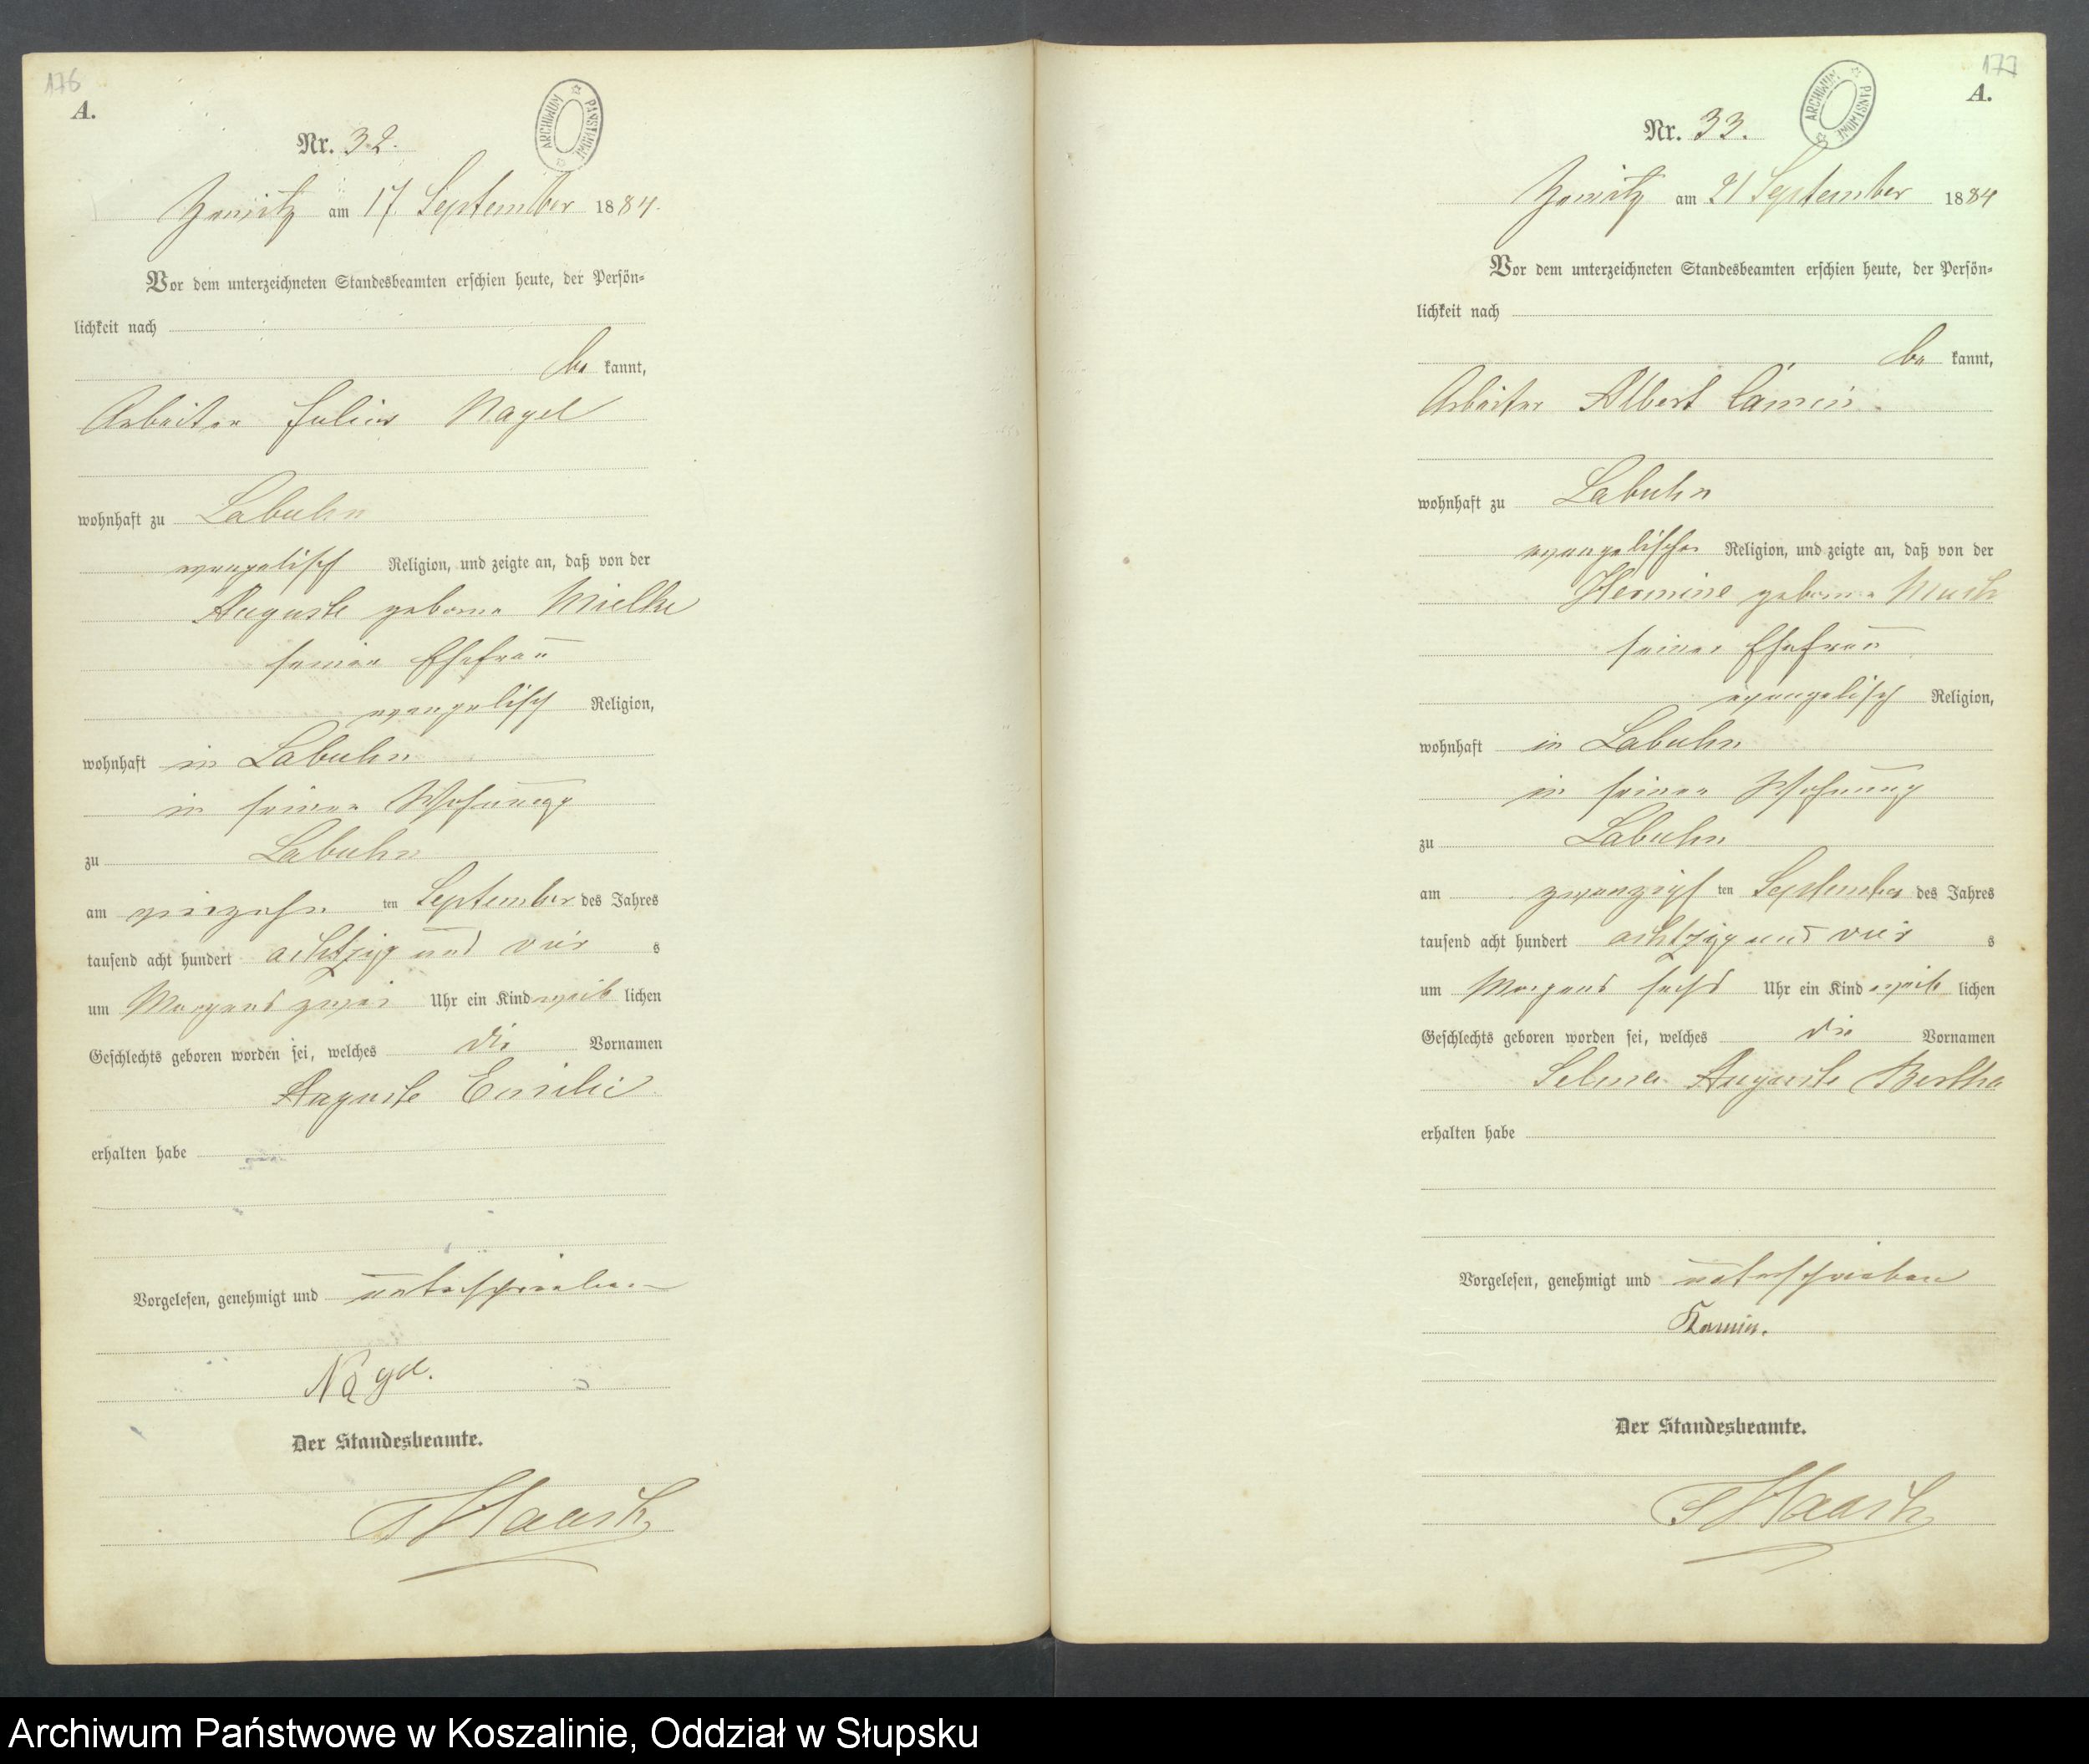 176
A.
ARCHIWUM PAŃSTWOWE
Nr. 32.
am 17. September 1884.
Vor dem unterzeichneten Standesbeamten erschien heute, der Persön-
lichkeit nach
be kannt,
Arbeiter Julius Nagel
wohnhaft zu Labuhn
evangelisch Religion, und zeigte an, daß von der
Auguste geborne Mielke
seiner Ehefrau
evangelisch Religion,
wohnhaft in Labuhn
in seiner Wohnung
zu Labuhn
am vierzehn ten September des Jahres
tausend acht hundert achtzig und vier s
um Morgens zwei Uhr ein Kind weib lichen
Geschlechts geboren worden sei, welches die Vornamen
Auguste Emilie
erhalten habe
Vorgelesen, genehmigt und unterschrieben
Nagel.
Der Standesbeamte.
177
A.
ARCHIWUM PAŃSTWOWE
Nr. 33.
am 21 September 1884
Vor dem unterzeichneten Standesbeamten erschien heute, der Persön-
lichkeit nach
be kannt,
Arbeiter Albert Camin
wohnhaft zu Labuhn
evangelischer Religion, und zeigte an, daß von der
Hermine geborne
seiner Ehefrau
evangelisch Religion,
wohnhaft in Labuhn
in seiner Wohnung
zu Labuhn
am zwanzigs ten September des Jahres
tausend acht hundert achtzig und vier s
um Morgens sechs Uhr ein Kind weib lichen
Geschlechts geboren worden sei, welches die Vornamen
Selma Auguste Bertha
erhalten habe
Vorgelesen, genehmigt und unterschrieben
Kamin.
Der Standesbeamte.
Archiwum Państwowe w Koszalinie, Oddział w Słupsku